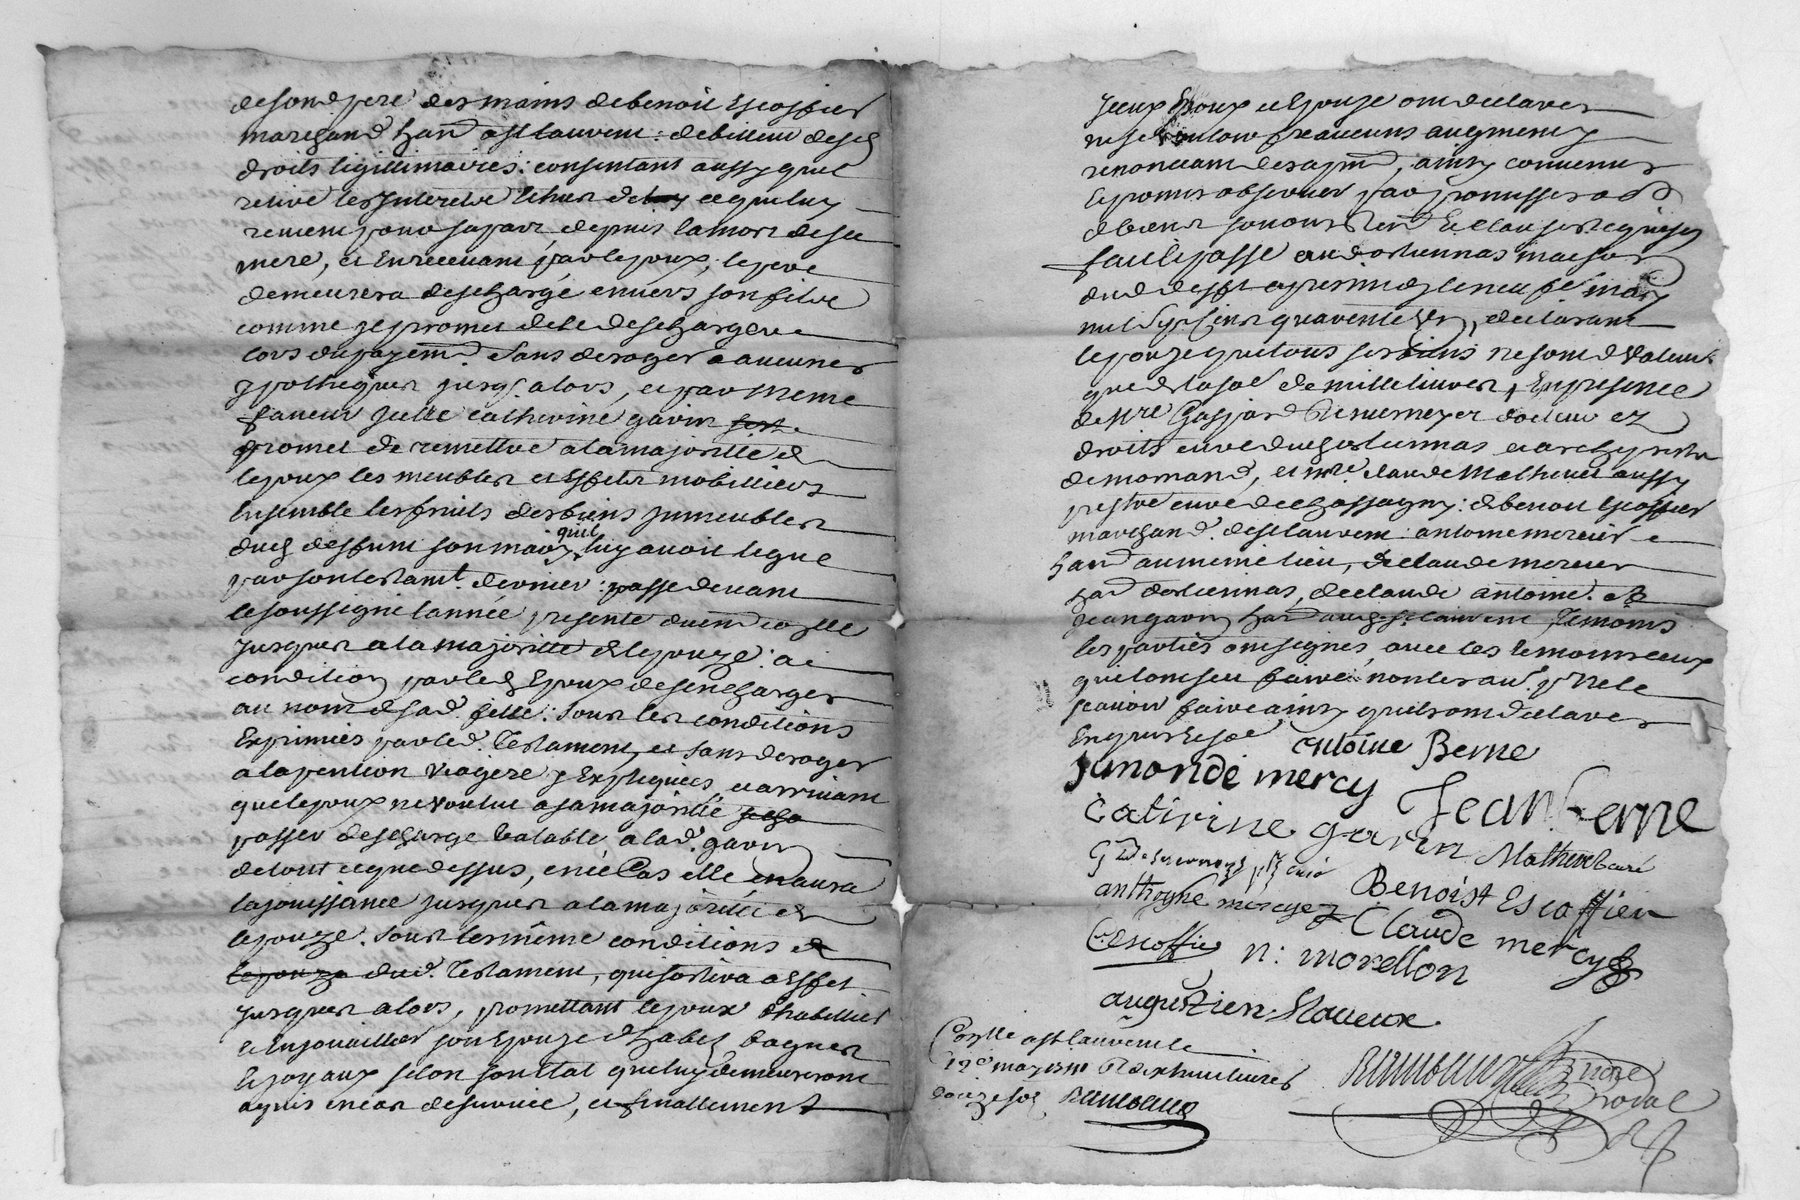 de son d pere des mains de benoit Escoffier
marchand hand a st laurent : debiteur de ses
droits legitimaires : consentant aussy quil
retire les Interets Echus de ce qui luy
revient pour sa part, depuis la mort de sa
mere, et En recevant par lepoux, le pere
demeurera descharge envers son fils
comme Je promet de le descharger
lors du payemt sans deroger a aucunes
ypotheques jusqs alors, et par meme
faveur Jcelle catherine gavin
promet de remettre a la majorité d
lepoux les meubles et Effets mobilliers
Ensemble les fruits des biens jmmeubles
dud deffunt son mary quil luy avoit legué
par son testamt dernier : passe devant
le soussigné lannée presente
Jusques a la majorité de lepouze : a
condition par led Epoux de sen charger
au nom de sad fille : sous les conditions
Exprimées par led. Testament, et sans deroger
a la pention viagere y Expliquées, et arrivant
que lepoux ne voulut a sa majorité
passer descharge valable a lad. gavin
de tout ce que dessus, en ce Cas elle en aura
la jouissance jusques a la majorité de
lepouze. sous les même conditions
dud. Testament, qui sortira a Effet
jusques alors, promettant lepoux dhabiller
et Enjouailler son Epouze d habes bagues
et joyaux selon son Etat que luy demeureront
aquis en cas de survie, et finallement
Jceux Epoux et Epouze ont declarer
ne se vouloir faire aucuns augment
renonceant, ainsy convenus
et promis observer par promisses
de biens soumissions Et clauses requises
fait et passe aud orliennas maison
dud defft apres midy le neuf may
mil sept cent quarente Un, declarant
lepouze que tous ses biens ne sont de valeur
que de la soe de mille livres, En presence
de Mre Gaspard docteur ez
droits curé dud orliennas et archyprestre
de mornand, et mre claude Matheud aussy
prestre curé de chassagny : de benoit Escoffier
marchand de st laurent antoine mercier
hand au meme lieu, de claude mercier
had dorliennas, de claude antoine et
jean gavin had aud st laurent Temoins
les parties ont signes avec les temoins ceux
qui lont seu faire non les aus pr ne le
scavoir faire ainsy quils ont declarer
Enquis Et soe antoine Berne
simonde mercy Jean Berne
Catirine gaven Mathieu Curé
Benoist Escoffier
anthoyne mercyez Claude mercyé
C. Escoffier n: morellon
augustien flaveux
Conlle a st laurent le
19e may 1741 R dix huit livres
douze sols Rambaud
Rambaud nore Roial